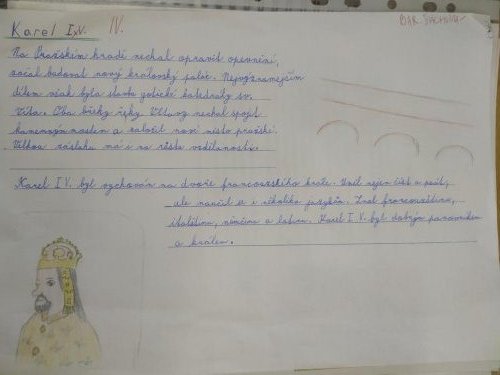 Karel IV. IV.
Na Pražském hradě nechal opravit opevnění,
začal budovat nový královský palác. Nejvýznamějším
dílem však byla stavba gotické katedrály sv.
Víta. Oba břehy řeky Vltavy nechal spojit
kamenným mostem a založil nové město pražské.
Velkou zásluhu má i na růstu vzdělanosti.
Karel IV. byl vychován na dvoře francouzského krále. Uměl nejen číst a psát,
ale naučil se i několika jazykům. Znal francouzštinu,
italštinu, němčinu a latinu. Karel IV. byl dobrým panovníkem
a králem.